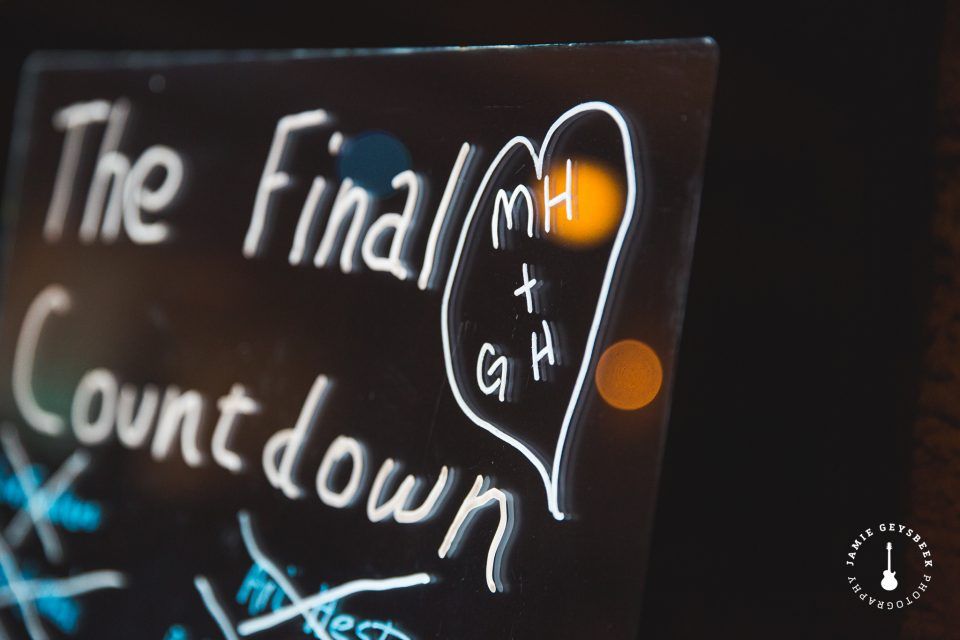 The Final
Countdown
MH
+
GH
JAMIE GEYSBEEK
PHOTOGRAPHY